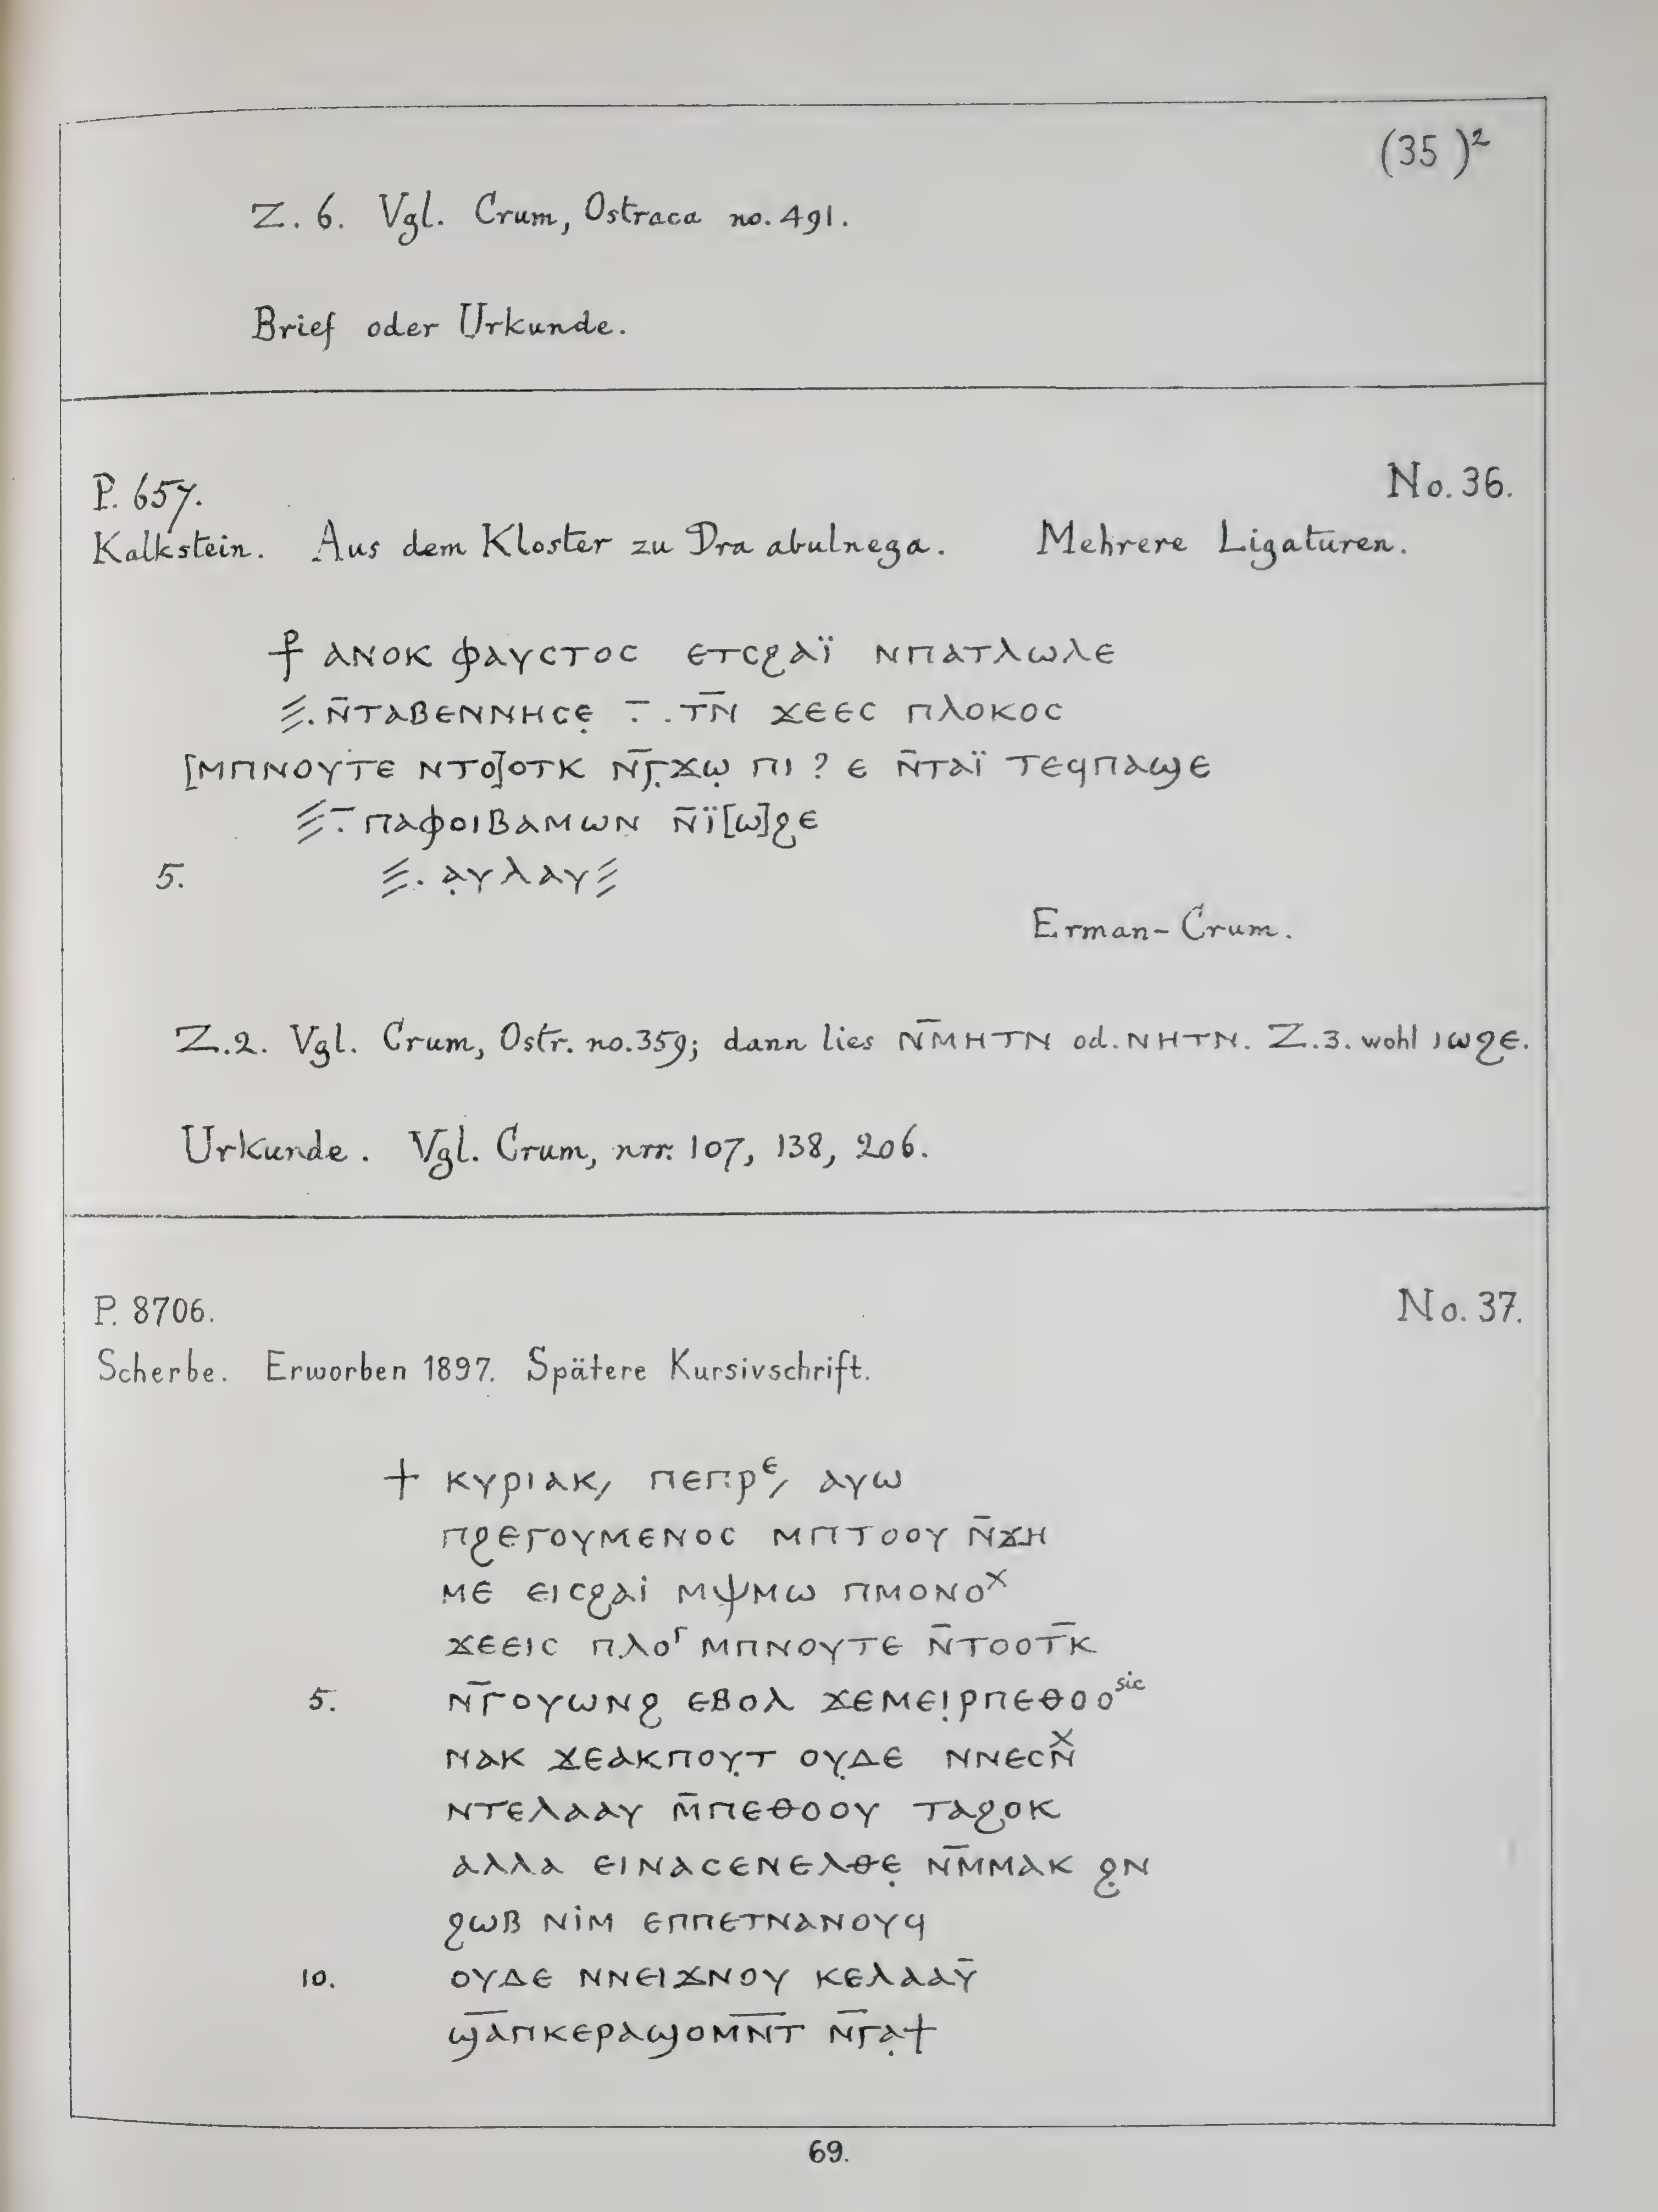 (35)²
Z. 6. Vgl. Crum, Ostraca no. 491.
Brief oder Urkunde.
P. 657.
No. 36.
Kalkstein. Aus dem Kloster zu Dra abulnega. Mehrere Ligaturen.
⳨ ⲁⲛⲟⲕ ⲫⲁⲩⲥⲧⲟⲥ ⲉⲧⲥϩⲁⲓ̈ ⲛⲡⲁⲧⲗⲱⲗⲉ
⳽. ⲛ̄ⲧⲁⲃⲉⲛⲛⲏⲥⲉ̣ ⲧ̄ⲛ̄ ϫⲉⲉⲥ ⲡⲗⲟⲕⲟⲥ
[ⲙⲡⲛⲟⲩⲧⲉ ⲛⲧⲟ]ⲟⲧⲕ ⲛ̄ⲅ̣ϫⲱ̣ ⲡⲓ ? ⲉ ⲛ̄ⲧⲁⲓ̈ ⲧⲉϥⲡⲁϣⲉ
ⲡⲁⲫⲟⲓⲃⲁⲙⲱⲛ ⲛ̄ⲓ̈[ⲱ]ϩⲉ
5. ⲁ̣ⲩⲗⲁⲩ
Erman-Crum.
Z. 2. Vgl. Crum, Ostr. no. 359; dann lies ⲛ̄ⲙⲏⲧⲛ od. ⲛⲏⲧⲛ. Z. 3. wohl ⲓⲱϩⲉ.
Urkunde. Vgl. Crum, nrr. 107, 138, 206.
P. 8706.
No. 37.
Scherbe. Erworben 1897. Spätere Kursivschrift.
+ ⲕⲩⲣⲓⲁⲕ, ⲡⲉⲡⲣᵉ, ⲁⲩⲱ
ⲡϩⲉⲅⲟⲩⲙⲉⲛⲟⲥ ⲙⲡⲧⲟⲟⲩ ⲛ̄ϫⲏ
ⲙⲉ ⲉⲓⲥϩⲁⲓ̇ ⲙⲯⲙⲱ ⲡⲙⲟⲛⲟˣ
ϫⲉⲉⲓⲥ ⲡⲗⲟᴦ ⲙⲡⲛⲟⲩⲧⲉ ⲛ̄ⲧⲟⲟⲧ̄ⲕ
5. ⲛ̄ⲅⲟⲩⲱⲛϩ ⲉⲃⲟⲗ ϫⲉⲙⲉⲓ̣ⲣⲡⲉⲑⲟⲟ sic
ⲛⲁⲕ ϫⲉⲁⲕⲡⲟⲩ̣ⲧ ⲟⲩ̣ⲇⲉ ⲛⲛⲉⲥⲛ̄ˣ
ⲛⲧⲉⲗⲁⲁⲩ ⲙ̄ⲡⲉⲑⲟⲟⲩ ⲧⲁϩⲟⲕ
ⲁⲗⲗⲁ ⲉⲓⲛⲁⲥⲉⲛⲉⲗⲑⲉ̣ ⲛ̄ⲙⲙⲁⲕ ϩ̣ⲛ
ϩⲱⲃ ⲛⲓ̇ⲙ ⲉⲡⲡⲉⲧⲛⲁⲛⲟⲩϥ
10. ⲟⲩⲇⲉ ⲛⲛⲉⲓϫⲛⲟⲩ ⲕⲉⲗⲁⲁⲩ̄
ϣ̄ⲁ̄ⲡⲕⲉⲣⲁϣⲟⲙ̄ⲛ̄ⲧ ⲛ̄ⲅⲁ̣+
69.